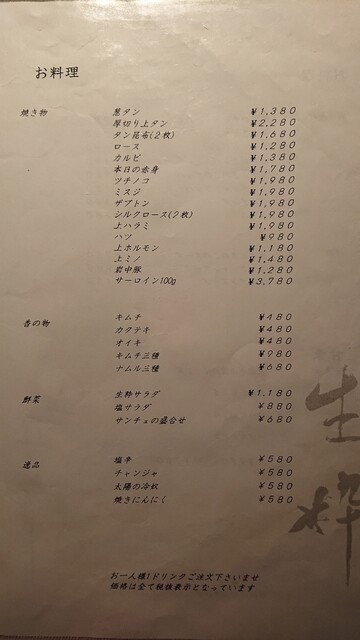 お料理
焼き物
葱タン ¥1,380
厚切り上タン ¥2,280
タン昆布(2枚) ¥1,680
ロース ¥1,280
カルビ ¥1,380
本日の赤身 ¥1,780
ツチノコ ¥1,980
ミスジ ¥1,980
ザブトン ¥1,980
シルクロース(2枚) ¥1,980
上ハラミ ¥1,980
ハツ ¥980
上ホルモン ¥1,180
上ミノ ¥1,480
岩中豚 ¥1,280
サーロイン100g ¥3,780
香の物
キムチ ¥480
カクテキ ¥480
オイキ ¥480
キムチ三種 ¥980
ナムル三種 ¥680
鮮菜
生粋サラダ ¥1,180
塩サラダ ¥880
サンチュの盛合せ ¥680
逸品
塩辛 ¥580
チャンジャ ¥580
太陽の冷奴 ¥580
焼きにんにく ¥580
生粋
お一人様1ドリンクご注文下さいませ
価格は全て税抜表示となっています